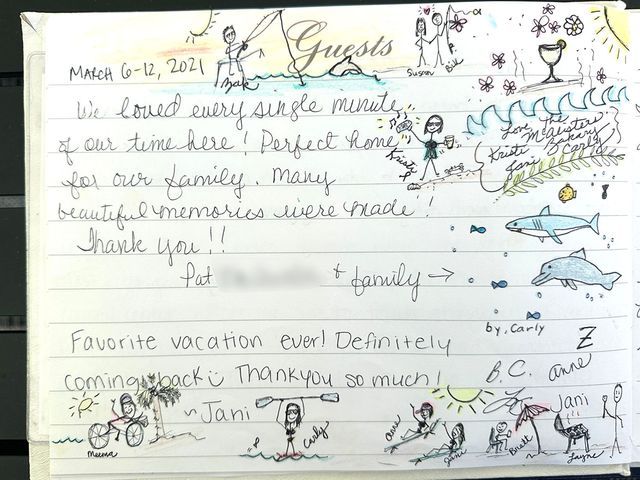 Guests
MARCH 6-12, 2021
Zak
Susan
Bill
We loved every single minute
of our time here! Perfect home
for our family. Many
beautiful memories were made!
Thank you!!
Pat + family →
Kristi
Love The
McAlisters
Kristi Zachary
Jani Carly
by, Carly
Favorite vacation ever! Definitely
coming back Thankyou so much!
~Jani
Z
B.C. anne
Jani
Meema
Carly
anne
Jani
Brett
Layne